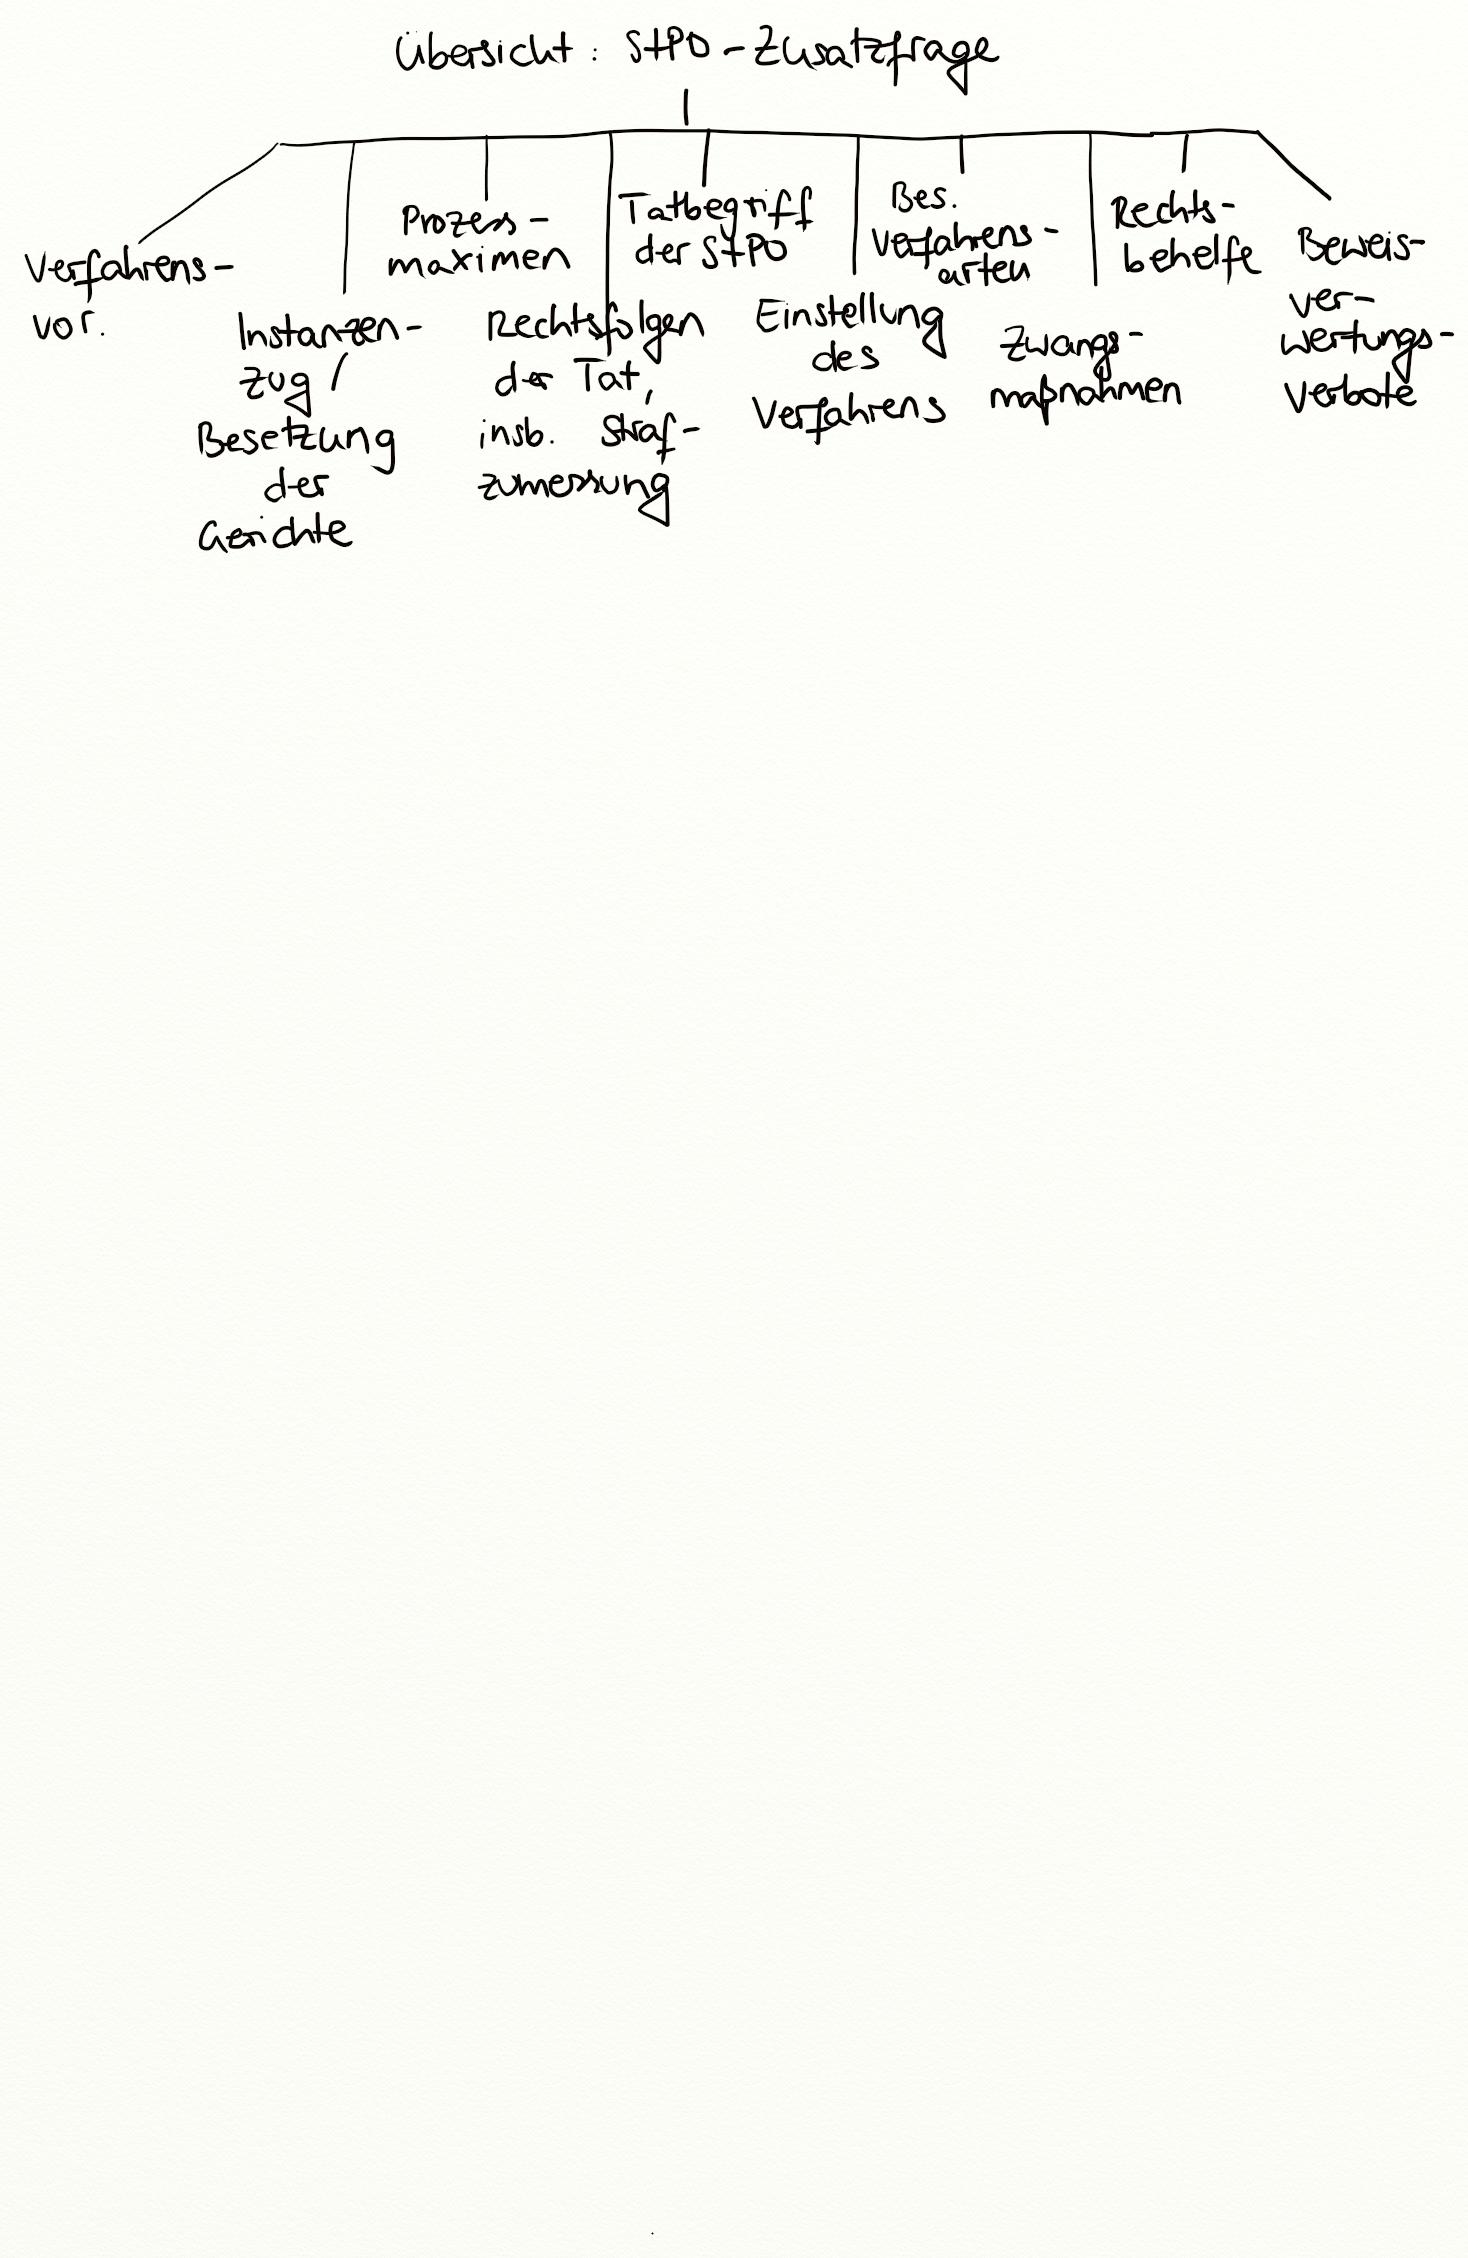 Übersicht: StPO-Zusatzfrage
Verfahrens-
vor.
Instanzen-
zug /
Besetzung
der
Gerichte
Prozess-
maximen
Rechtsfolgen
der Tat,
insb. Straf-
zumessung
Tatbegriff
der StPO
Einstellung
des
Verfahrens
Bes.
Verfahrens-
arten
Zwangs-
maßnahmen
Rechts-
behelfe
Beweis-
ver-
wertungs-
verbote